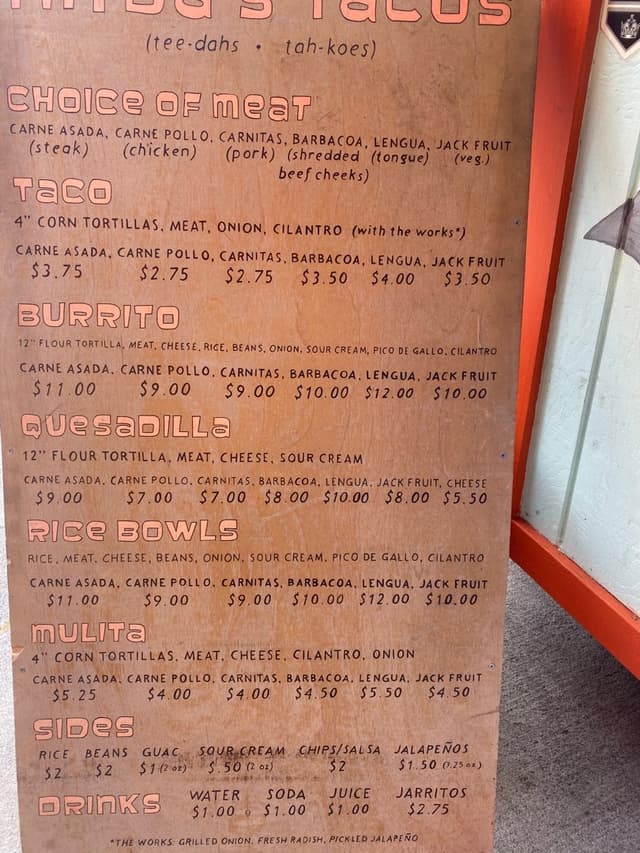 TACOS
(tee-dahs • tah-koes)
CHOICE OF MEAT
CARNE ASADA, CARNE POLLO, CARNITAS, BARBACOA, LENGUA, JACK FRUIT
(steak) (chicken) (pork) (shredded (tongue) (veg.)
beef cheeks)
TACO
4" CORN TORTILLAS, MEAT, ONION, CILANTRO (with the works*)
CARNE ASADA, CARNE POLLO, CARNITAS, BARBACOA, LENGUA, JACK FRUIT
$3.75 $2.75 $2.75 $3.50 $4.00 $3.50
BURRITO
12" FLOUR TORTILLA, MEAT, CHEESE, RICE, BEANS, ONION, SOUR CREAM, PICO DE GALLO, CILANTRO
CARNE ASADA, CARNE POLLO, CARNITAS, BARBACOA, LENGUA, JACK FRUIT
$11.00 $9.00 $9.00 $10.00 $12.00 $10.00
QUESADILLA
12" FLOUR TORTILLA, MEAT, CHEESE, SOUR CREAM
CARNE ASADA, CARNE POLLO, CARNITAS, BARBACOA, LENGUA, JACK FRUIT, CHEESE
$9.00 $7.00 $7.00 $8.00 $10.00 $8.00 $5.50
RICE BOWLS
RICE, MEAT, CHEESE, BEANS, ONION, SOUR CREAM, PICO DE GALLO, CILANTRO
CARNE ASADA, CARNE POLLO, CARNITAS, BARBACOA, LENGUA, JACK FRUIT
$11.00 $9.00 $9.00 $10.00 $12.00 $10.00
MULITA
4" CORN TORTILLAS, MEAT, CHEESE, CILANTRO, ONION
CARNE ASADA, CARNE POLLO, CARNITAS, BARBACOA, LENGUA, JACK FRUIT
$5.25 $4.00 $4.00 $4.50 $5.50 $4.50
SIDES
RICE BEANS GUAC SOUR CREAM CHIPS/SALSA JALAPEÑOS
$2 $2 $1 (2 oz) $.50 (2 oz) $2 $1.50 (3.25 oz)
DRINKS WATER SODA JUICE JARRITOS
$1.00 $1.00 $1.00 $2.75
*THE WORKS: GRILLED ONION, FRESH RADISH, PICKLED JALAPEÑO